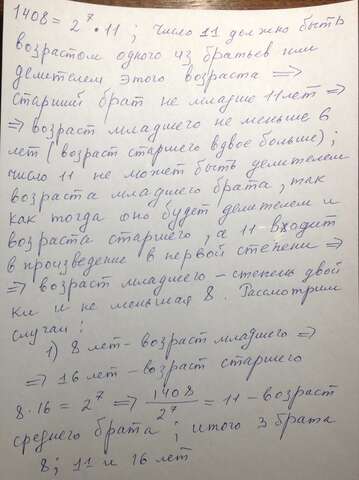 1408 = 2⁷ • 11 ; число 11 должно быть
возрастом одного из братьев или
делителем этого возраста ⟹
старший брат не младше 11 лет ⟹
⟹ возраст младшего не меньше 6
лет ( возраст старшего вдвое больше) ;
число 11 не может быть делителем
возраста младшего брата, так
как тогда оно будет делителем и
возраста старшего, а 11 - входит
в произведение в первой степени ⟹
⟹ возраст младшего - степень двой
ки и не меньшая 8 . Рассмотрим
случаи :
1) 8 лет - возраст младшего ⟹
⟹ 16 лет - возраст старшего
8 · 16 = 2⁷ ⟹ 1408/2⁷ = 11 - возраст
среднего брата ; итого 3 брата
8 ; 11 и 16 лет